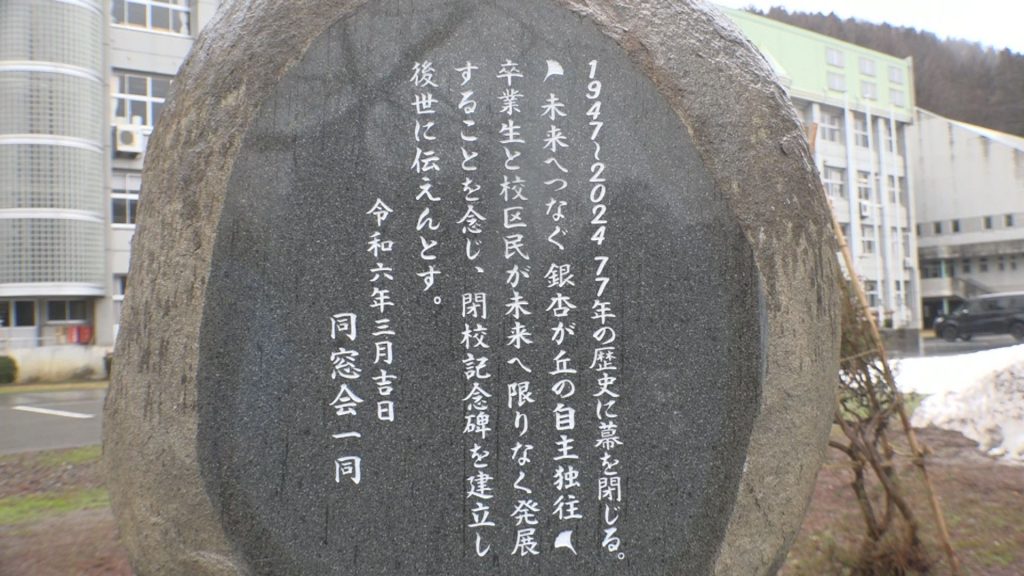 1947〜2024 77年の歴史に幕を閉じる。
〝未来へつなぐ 銀杏が丘の自主独往〟
卒業生と校区民が未来へ限りなく発展
することを念じ、閉校記念碑を建立し
後世に伝えんとす。
令和六年三月吉日
同窓会一同